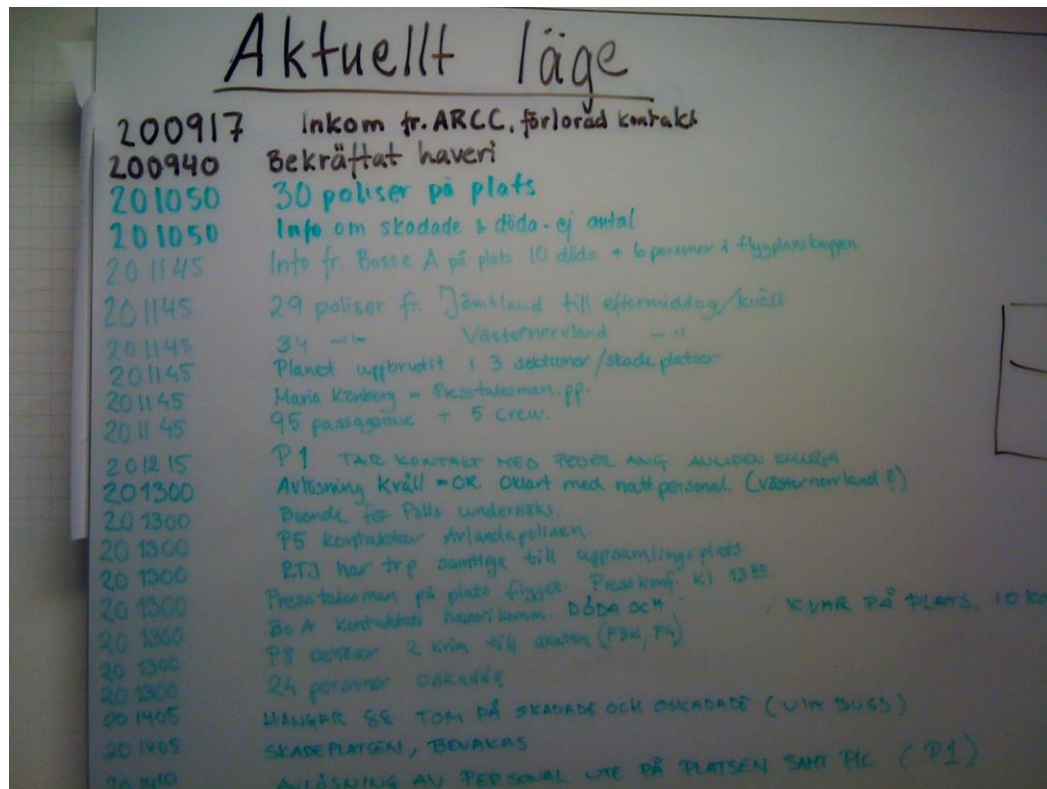 Aktuellt läge
200917 Inkom fr. ARCC, förlorad kontakt
200940 Bekräftat haveri
201050 30 poliser på plats
201050 Info om skadade & döda - ej antal
201145 Info fr. Bosse A på plats. 10 döda + 6 personer i flygplanskroppen
201145 29 poliser fr. Jämtland till eftermiddag/kväll
201145 34 -"- Västernorrland -"
201145 Planet uppbrutit i 3 sektioner/skadeplatser
201145 Maria = Presstalesman pp.
201145 95 passagerare + 5 crew.
201215 P1 TAR KONTAKT MED PEDER ANG
201300 Avlösning kväll = OK. Oklart med nattpersonal. (Västernorrland?)
201300 Boende för Polis undersöks.
201300 P5 kontaktar Arlandapolisen.
201300 RTJ har trp samtliga till uppsamlingsplats
201300 Presstalesman på plats flyget. Presskonf. kl 1330.
201300 Bo A kontaktat haverikomm. DÖDA OCH KVAR PÅ PLATS, 10
201300 P8 2 krim till akuten (P3K, P4)
201300 24 personer oskadda
201405 HANGAR 88 TOM PÅ SKADADE OCH OSKADADE (VIA BUSS)
201405 SKADEPLATSEN, BEVAKAS
201410 AVLÖSNING AV PERSONAL UTE PÅ PLATSEN SAMT PIC (P1)